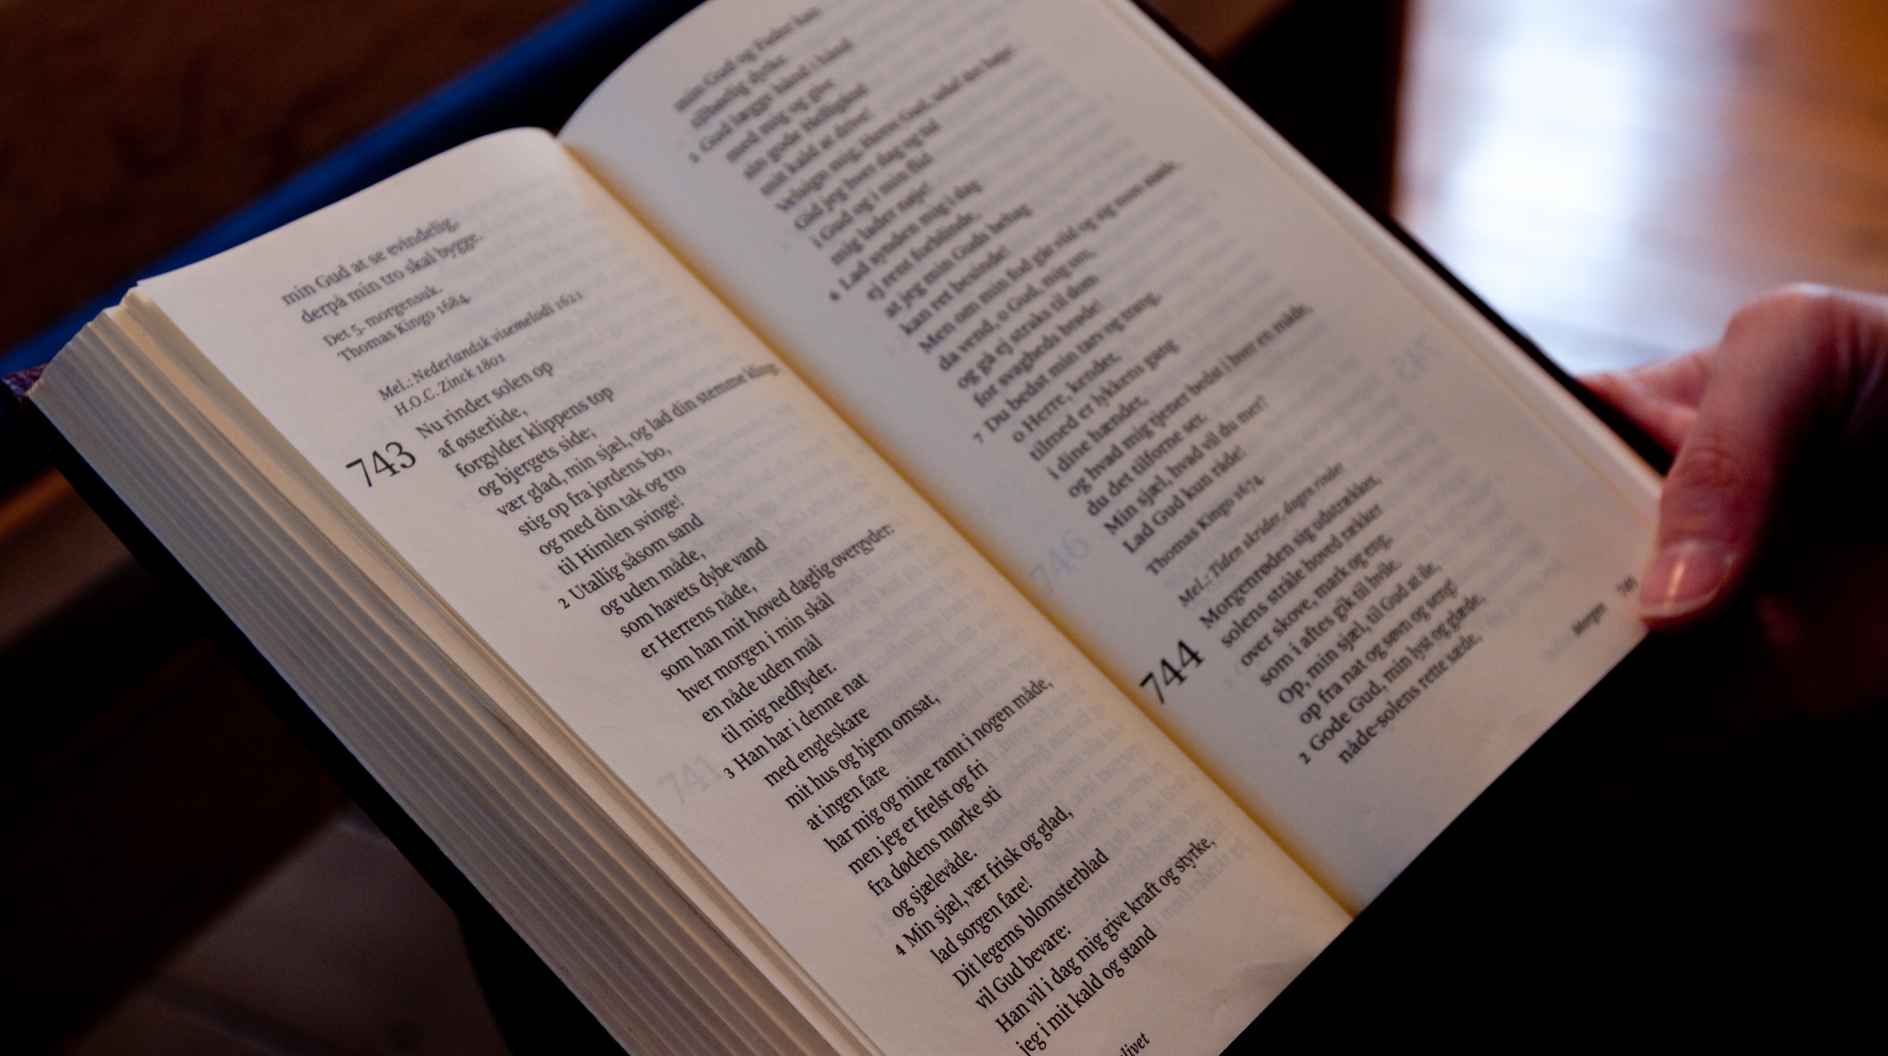 min Gud at se evindelig,
derpå min tro skal bygge.
Det 5. morgensuk.
Thomas Kingo 1684.
Mel.: Nederlandsk visemelodi 1621
H.O.C. Zinck 1801
743
Nu rinder solen op
af østerlide,
forgylder klippens top
og bjergets side;
vær glad, min sjæl, og lad din stemme kling
stig op fra jordens bo,
og med din tak og tro
til Himlen svinge!
2 Utallig såsom sand
og uden måde,
som havets dybe vand
er Herrens nåde,
som han mit hoved daglig overgyder:
hver morgen i min skål
en nåde uden mål
til mig nedflyder.
3 Han har i denne nat
med engleskare
mit hus og hjem omsat,
at ingen fare
har mig og mine ramt i nogen måde,
men jeg er frelst og fri
fra dødens mørke sti
og sjælevåde.
4 Min sjæl, vær frisk og glad,
lad sorgen fare!
Dit legems blomsterblad
vil Gud bevare:
Han vil i dag mig give kraft og styrke,
jeg i mit kald og stand
livet
min Gud og Fader kan
tilbørlig dyrke.
5 Gud lægge hånd i hånd
med mig og give
sin gode Helligånd
mit kald at drive!
Velsign mig, Herre Gud,
Gid jeg hver dag og tid
i Gud og i min flid
mig lader nøje!
6 Lad synden mig i dag
ej rent forblinde,
at jeg min Guds behag
kan ret besinde!
Men om min fod går vild og sig mon støde,
da vend, o Gud, mig om,
og gå ej straks til dom
for svagheds brøde!
7 Du bedst min tarv og trang,
o Herre, kender,
tilmed er lykkens gang
i dine hænder,
og hvad mig tjener bedst i hver en måde,
du det tilforne ser.
Min sjæl, hvad vil du mer?
Lad Gud kun råde!
Thomas Kingo 1674.
Mel.: Tiden skrider, dagen rinder
744
Morgenrøden sig udstrækker,
solens stråle hoved rækker
over skove, mark og eng,
som i aftes gik til hvile.
Op, min sjæl, til Gud at ile,
op fra nat og søvn og seng!
2 Gode Gud, min lyst og glæde,
nåde-solens rette sæde,
Morgen